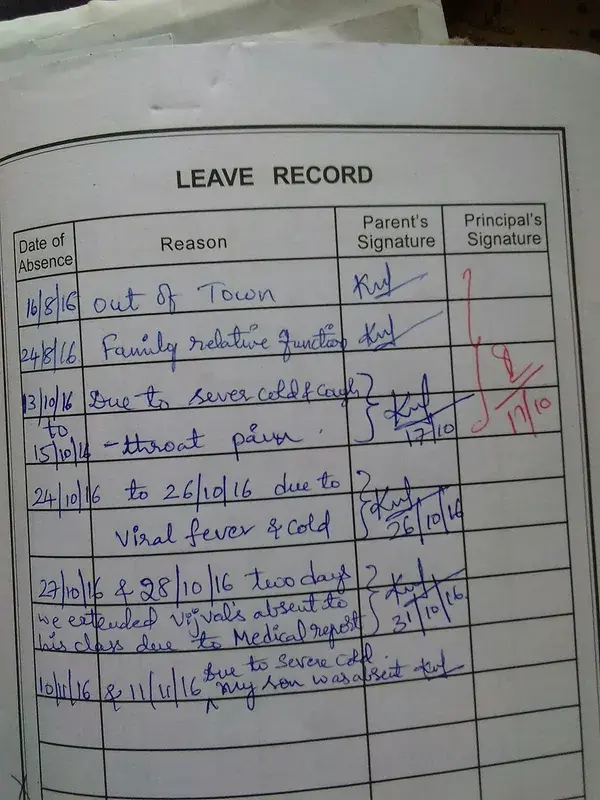 LEAVE RECORD
Date of Absence Reason Parent's Signature Principal's Signature
16/8/16 Out of Town
24/8/16 Family relative function
13/10/16 Due to sever cold & cough
to
15/10/16 - throat pain. 17/10 17/10
24/10/16 to 26/10/16 due to
Viral fever & cold 26/10/16
27/10/16 & 28/10/16 two days
we extended Vijval's absent to 31/10/16
his class due to Medical report
Due to severe cold
10/11/16 & 11/11/16 My son was absent